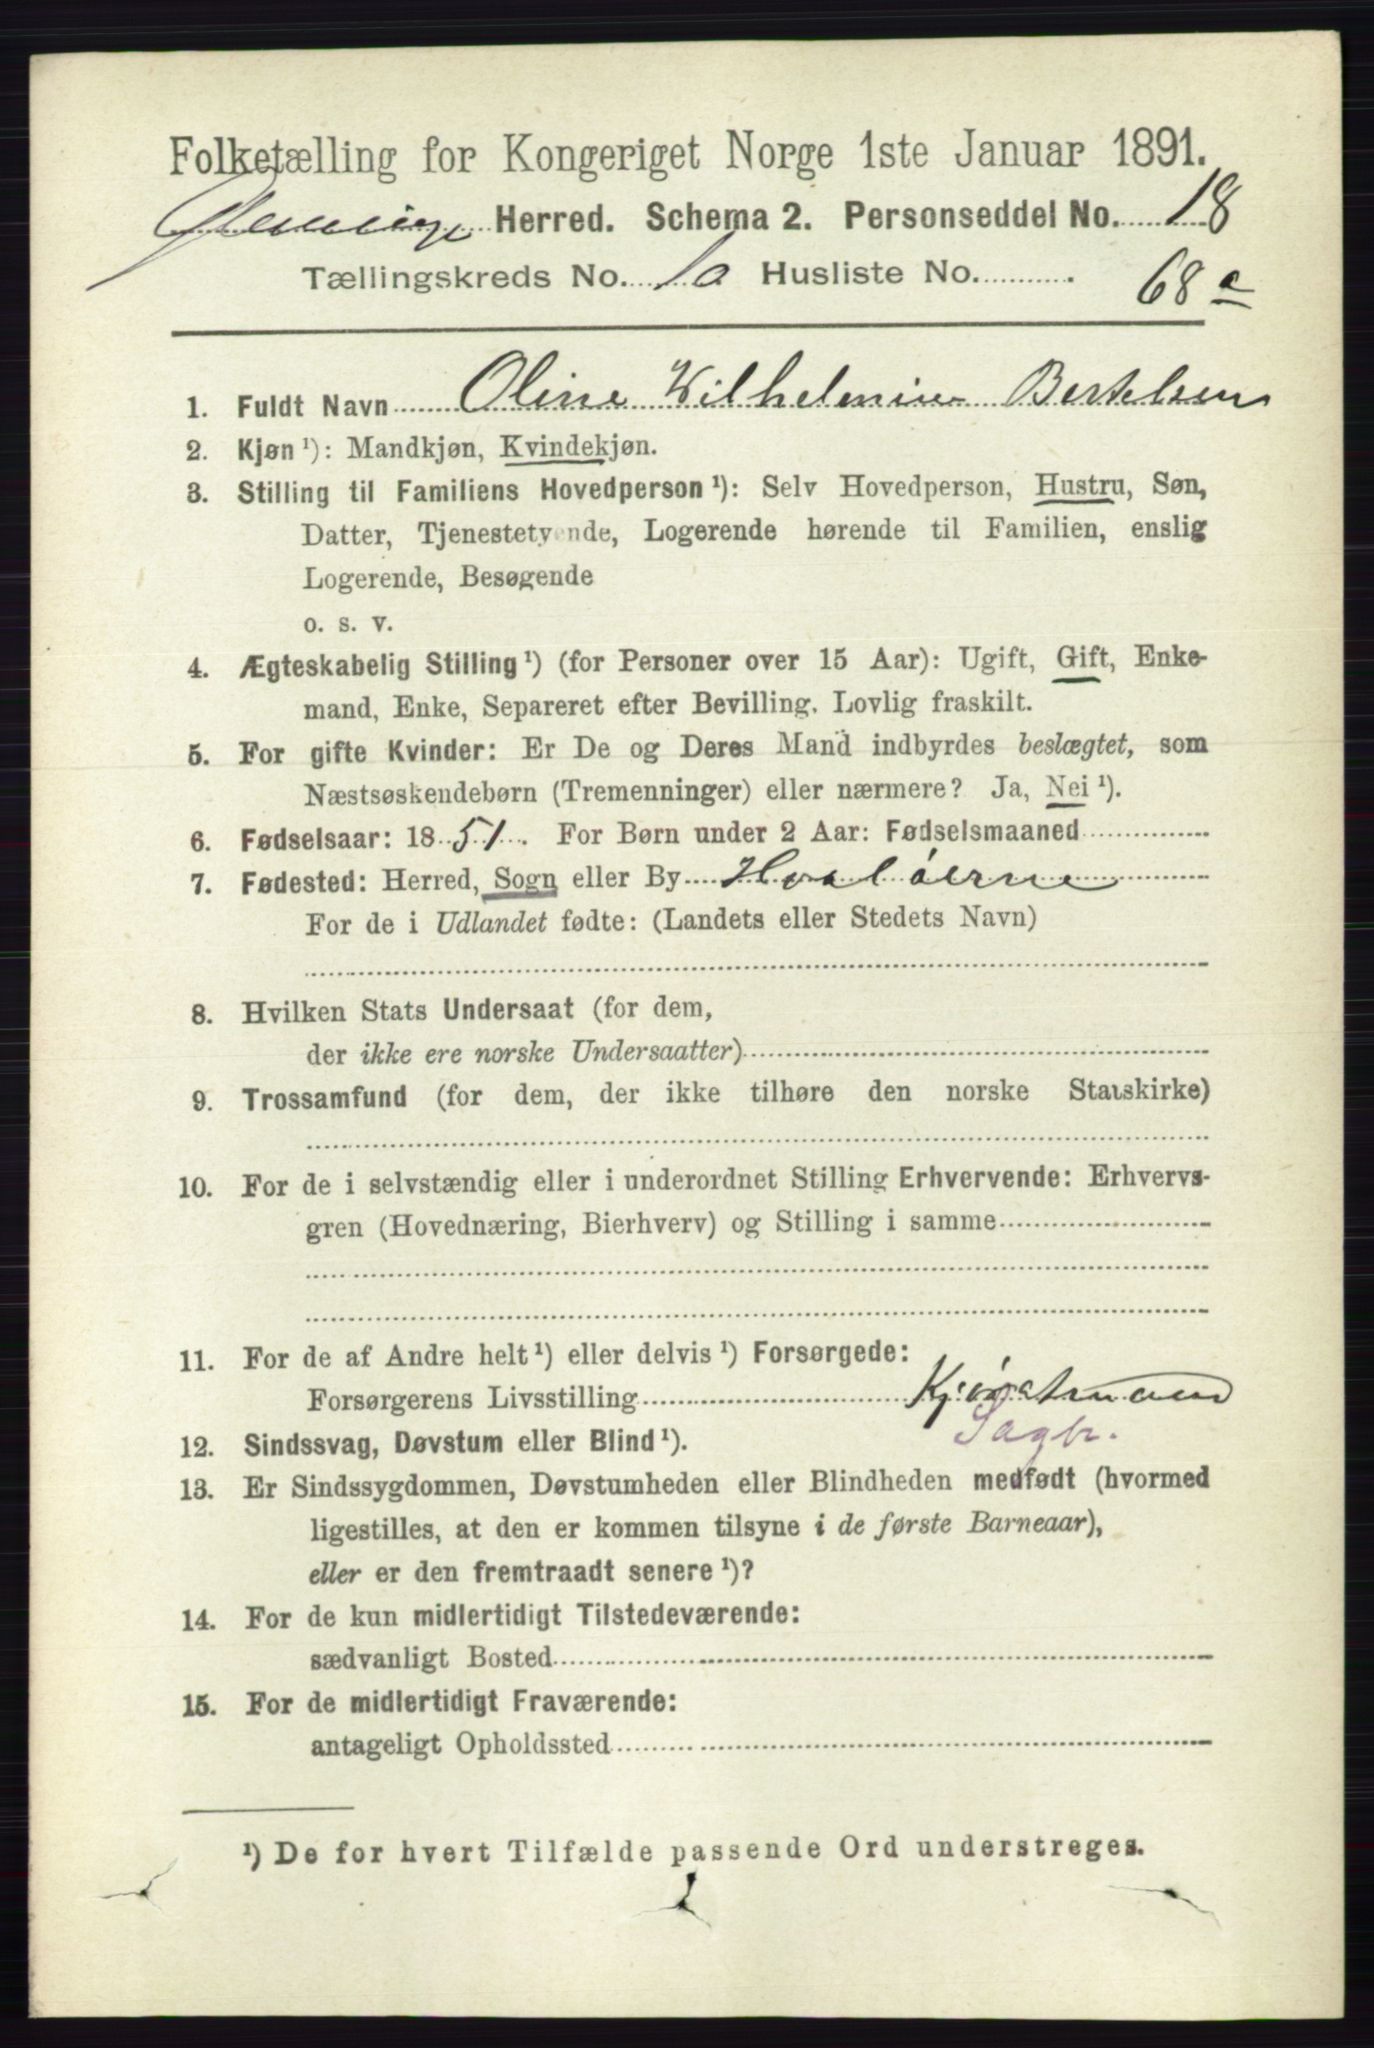 Folketælling for Kongeriget Norge 1ste Januar 1891.
Glemminge Herred. Schema 2. Personseddel No. 18
Tællingskreds No. 10 Husliste No. 68 a
1. Fuldt Navn Oline Wilhelmine Bertelsen
2. Kjøn ¹): Mandkjøn, Kvindekjøn.
3. Stilling til Familiens Hovedperson ¹): Selv Hovedperson, Hustru, Søn,
Datter, Tjenestetyende, Logerende hørende til Familien, enslig
Logerende, Besøgende
o. s. v.
4. Ægteskabelig Stilling ¹) (for Personer over 15 Aar): Ugift, Gift, Enke-
mand, Enke, Separeret efter Bevilling. Lovlig fraskilt.
5. For gifte Kvinder: Er De og Deres Mand indbyrdes beslægtet, som
Næstsøskendebørn (Tremenninger) eller nærmere? Ja, Nei ¹).
6. Fødselsaar: 18 51. For Børn under 2 Aar: Fødselsmaaned
7. Fødested: Herred, Sogn eller By Hvaløerne
For de i Udlandet fødte: (Landets eller Stedets Navn)
8. Hvilken Stats Undersaat (for dem,
der ikke ere norske Undersaatter)
9. Trossamfund (for dem, der ikke tilhøre den norske Statskirke)
10. For de i selvstændig eller i underordnet Stilling Erhvervende: Erhvervs-
gren (Hovednæring, Bierhverv) og Stilling i samme
11. For de af Andre helt ¹) eller delvis ¹) Forsørgede:
Forsørgerens Livsstilling
Sagbr.
12. Sindssvag, Døvstum eller Blind ¹).
13. Er Sindssygdommen, Døvstumheden eller Blindheden medfødt (hvormed
ligestilles, at den er kommen tilsyne i de første Barneaar),
eller er den fremtraadt senere ¹)?
14. For de kun midlertidigt Tilstedeværende:
sædvanligt Bosted
15. For de midlertidigt Fraværende:
antageligt Opholdssted
¹) De for hvert Tilfælde passende Ord understreges.